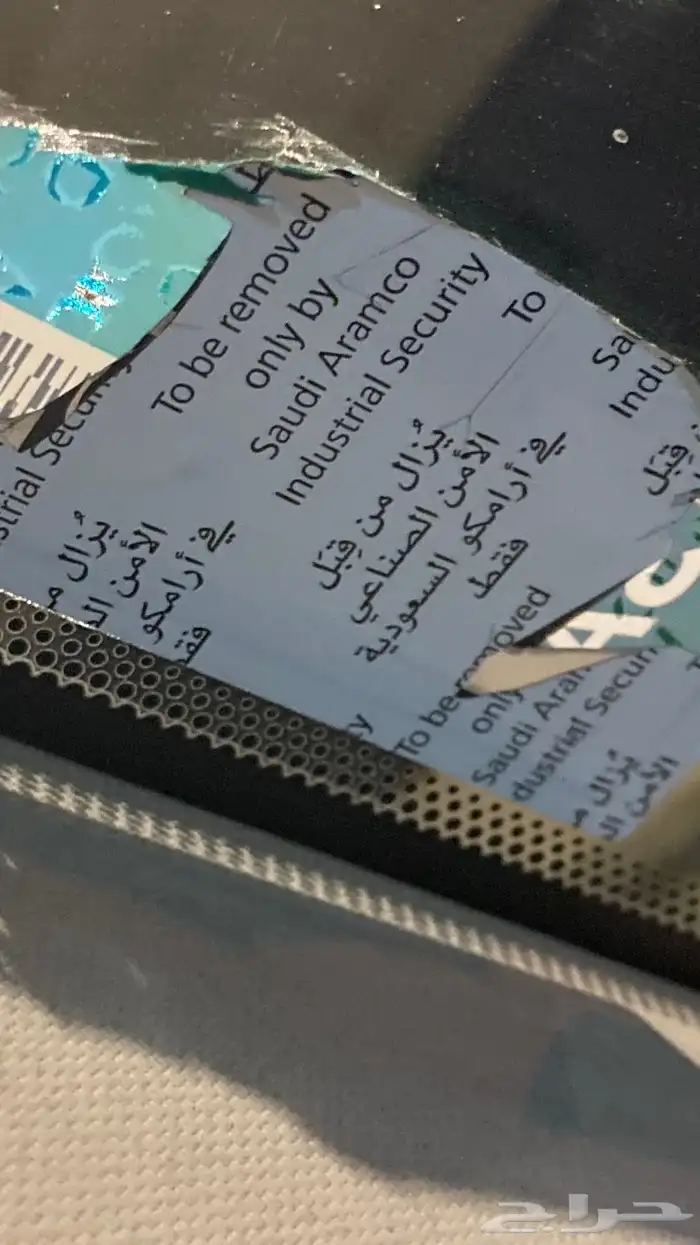 To be removed
only by
Saudi Aramco
Industrial Security
يُزال من قِبَل
الأمن الصناعي
في أرامكو السعودية
فقط
To
Sa
Indu
قِبَل
strial Secur
يُزال م
الأمن ال
في أرامكو
فقط
To be removed
only
Saudi Aram
dustrial Securi
يُزال م
الأمن ال
حراج